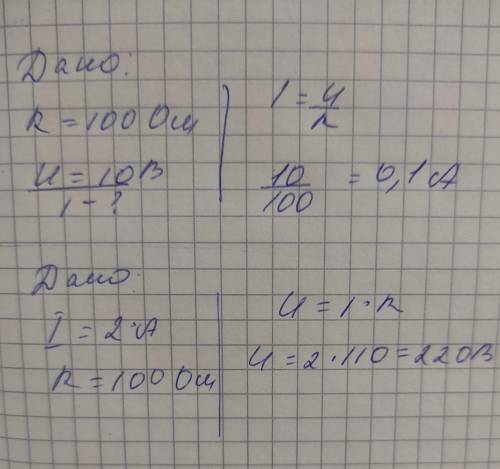 Дано:
R = 100 Ом
U = 10В
I - ?
I = U/R
10/100 = 0,1 А
Дано:
I = 2·А
R = 100 Ом
U = I · R
U = 2 · 110 = 220В